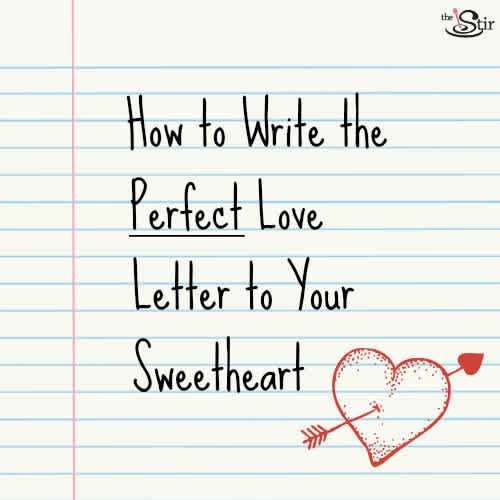 the Stir
How to Write the
Perfect Love
Letter to Your
Sweetheart